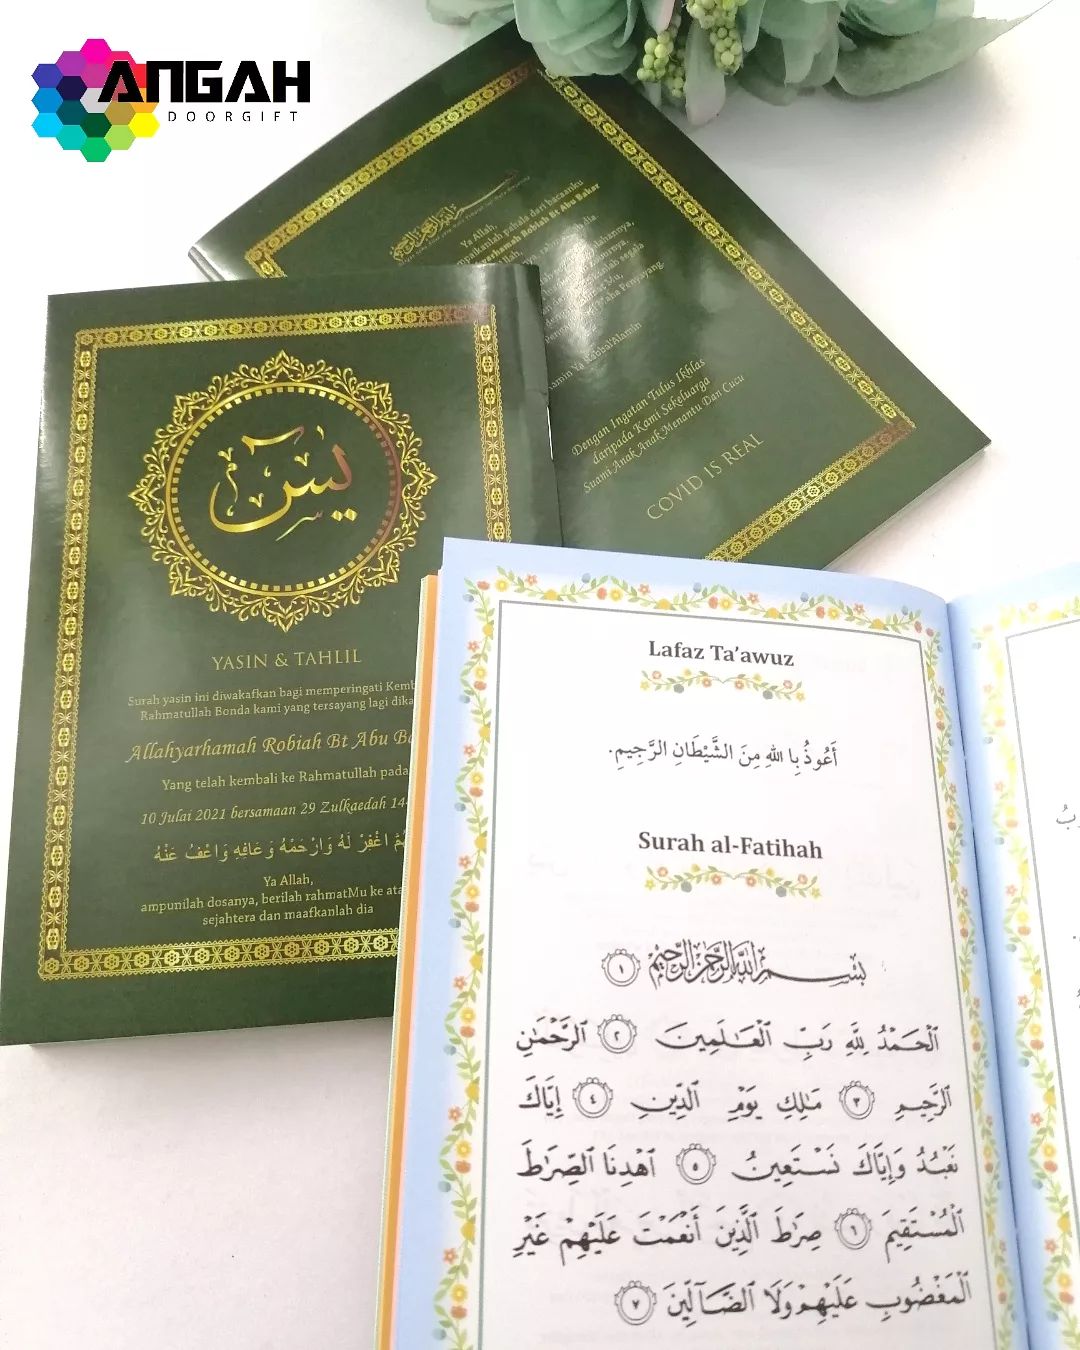 ANGAH
DOORGIFT
Ya Allah,
pahala dari bacaanku
Robiah Bt Abu Baker
Dengan Ingatan Tulus Ikhlas
daripada Kami Sekeluarga
Suami Anak Anak Menantu Dan Cucu
COVID IS REAL
يس
YASIN & TAHLIL
Surah yasin ini diwakafkan bagi memperingati
Rahmatullah Bonda kami yang tersayang lagi
Allahyarhamah Robiah Bt Abu
Yang telah kembali ke Rahmatullah pada
10 Julai 2021 bersamaan 29 Zulkaedah
اغْفِرْ لَهُ وَارْحَمْهُ وَعَافِهِ وَاعْفُ عَنْهُ
Ya Allah,
ampunilah dosanya, berilah rahmatMu ke
sejahtera dan maafkanlah dia
Lafaz Ta’awuz
أَعُوذُ بِا للهِ مِنَ الشَّيْطَانِ الرَّجِيمِ.
Surah al-Fatihah
بِسْمِ اللَّهِ الرَّحْمَٰنِ الرَّحِيمِ ١
ٱلْحَمْدُ لِلَّهِ رَبِّ ٱلْعَـٰلَمِينَ ٢ ٱلرَّحْمَـٰنِ
ٱلرَّحِيمِ ٣ مَـٰلِكِ يَوْمِ ٱلدِّينِ ٤ إِيَّاكَ
نَعْبُدُ وَإِيَّاكَ نَسْتَعِينُ ٥ ٱهْدِنَا ٱلصِّرَٰطَ
ٱلْمُسْتَقِيمَ ٦ صِرَٰطَ ٱلَّذِينَ أَنْعَمْتَ عَلَيْهِمْ غَيْرِ
ٱلْمَغْضُوبِ عَلَيْهِمْ وَلَا ٱلضَّآلِّينَ ٧